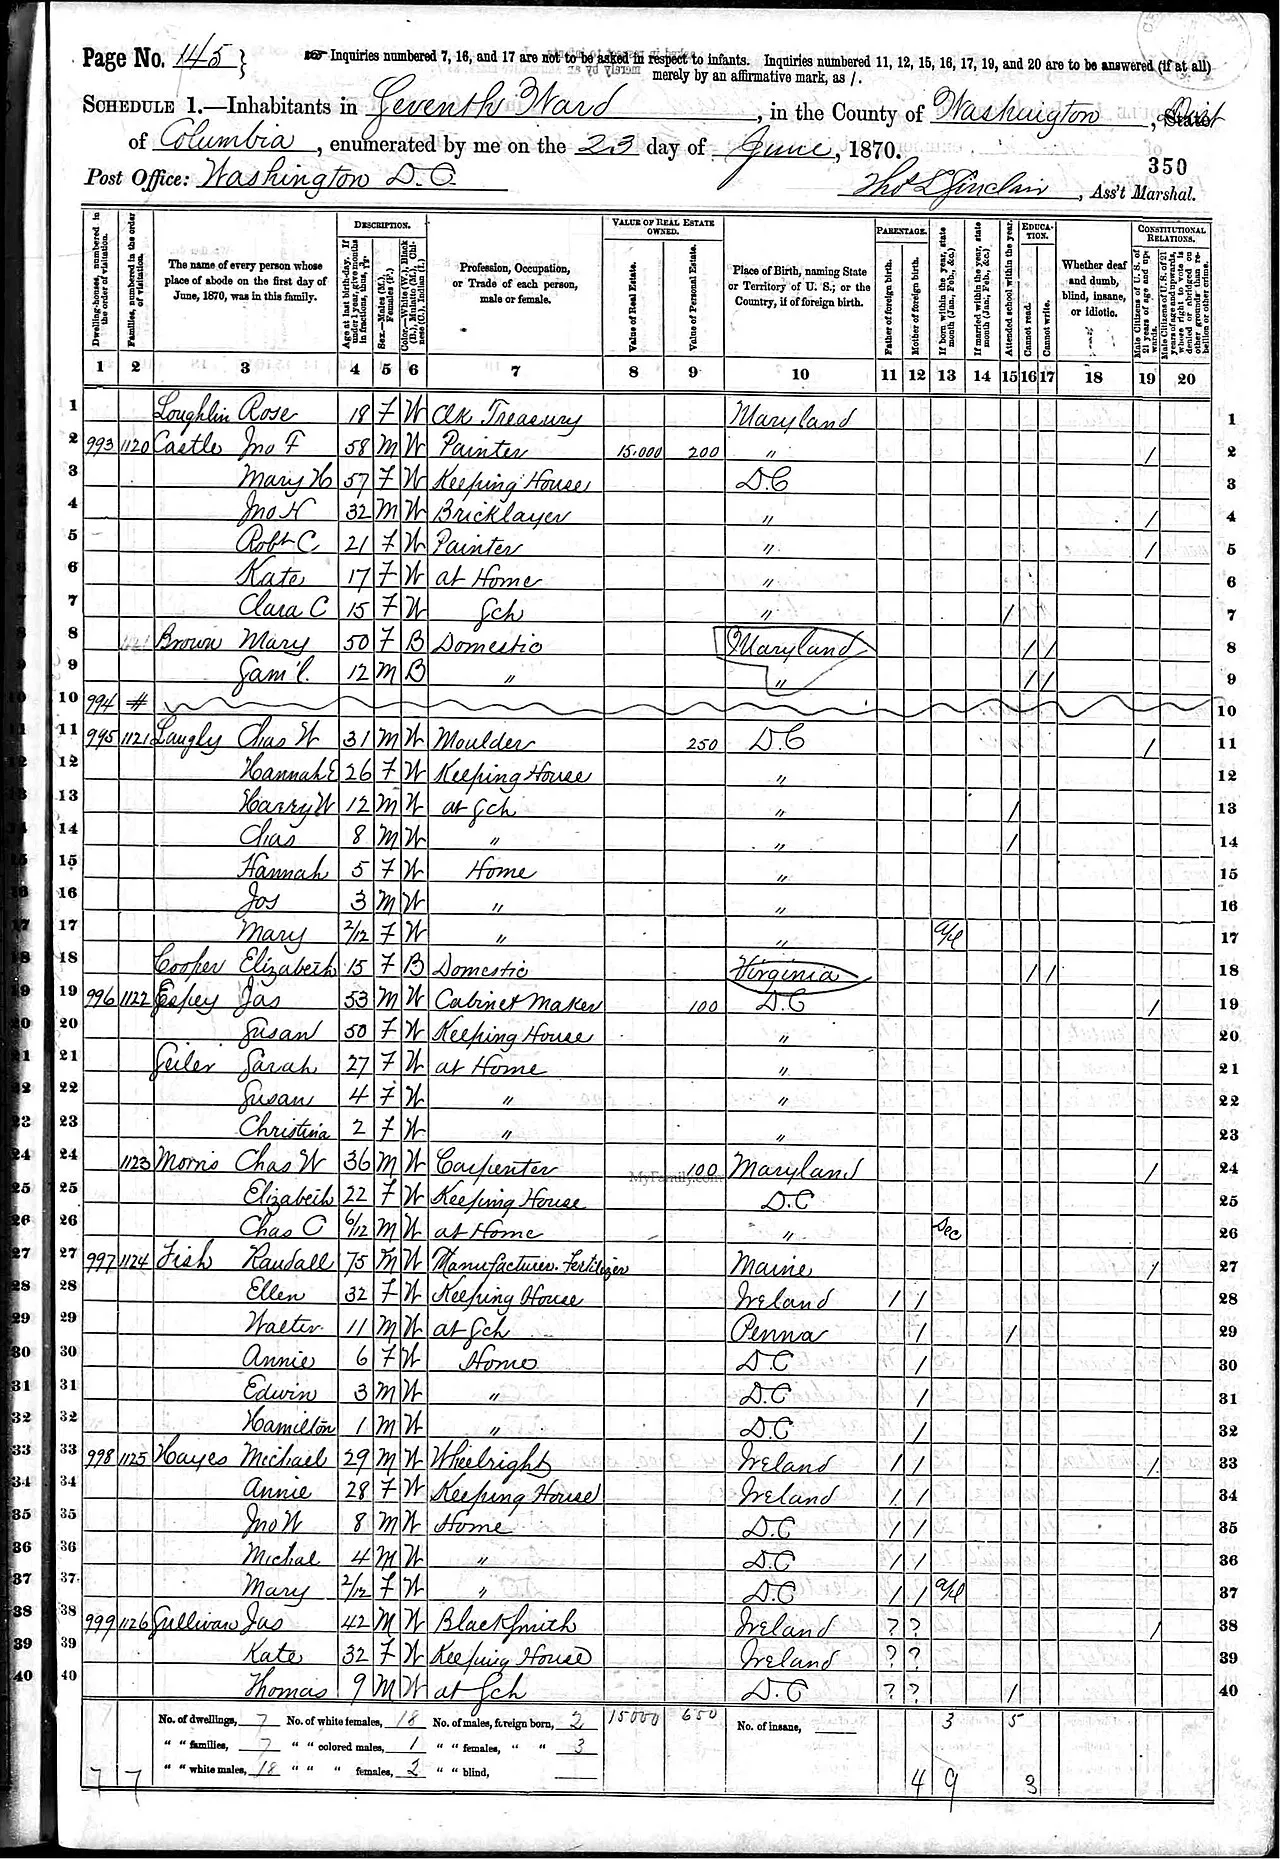 Page No. 145 } Inquiries numbered 7, 16, and 17 are not to be asked in respect to infants. Inquiries numbered 11, 12, 15, 16, 17, 19, and 20 are to be answered (if at all)
merely by an affirmative mark, as /.
SCHEDULE 1.—Inhabitants in Seventh Ward, in the County of Washington, State Dist
of Columbia, enumerated by me on the 23 day of June, 1870.
350
Post Office: Washington D.C. Thos L Sinclair, Ass't Marshal.
Dwelling-houses, numbered in the order of visitation.
Families, numbered in the order of visitation.
The name of every person whose place of abode on the first day of June, 1870, was in this family.
DESCRIPTION.
Age at last birth-day. If under 1 year, give months in fractions, thus, 3/12
Sex.—Males (M.), Females (F.)
Color.—White (W.), Black (B.), Mulatto (M.), Chinese (C.), Indian (I.)
Profession, Occupation, or Trade of each person, male or female.
VALUE OF REAL ESTATE OWNED.
Value of Real Estate.
Value of Personal Estate.
Place of Birth, naming State or Territory of U. S.; or the Country, if of foreign birth.
PARENTAGE.
Father of foreign birth.
Mother of foreign birth.
If born within the year, state month (Jan., Feb., &c.)
If married within the year, state month (Jan., Feb., &c.)
Attended school within the year.
EDUCATION.
Cannot read.
Cannot write.
Whether deaf and dumb, blind, insane, or idiotic.
CONSTITUTIONAL RELATIONS.
Male Citizens of U. S. of 21 years of age and upwards.
Male Citizens of U. S. of 21 years of age and upwards, whose right to vote is denied or abridged on other grounds than rebellion or other crime.
1 2 3 4 5 6 7 8 9 10 11 12 13 14 15 16 17 18 19 20
1 Loughlin Rose 18 F W Clk Treasury Maryland 1
2 993 1120 Castle Jno F 58 M W Painter 15.000 200 " / 2
3 Mary H 57 F W Keeping House D.C 3
4 Jno H 32 M W Bricklayer " / 4
5 Robt C 21 F W Painter " / 5
6 Kate 17 F W at Home " 6
7 Clara C 15 F W Sch " / 7
8 Brown Mary 50 F B Domestic Maryland / / 8
9 Sam'l. 12 M B " " / / 9
10 994 # 10
11 995 1121 Langly Chas W 31 M W Moulder 250 D.C / 11
12 Hannah E 26 F W Keeping House " 12
13 Harry W 12 M W at Sch " / 13
14 Chas 8 M W " " / 14
15 Hannah 5 F W Home " 15
16 Jos 3 M W " " 16
17 Mary 2/12 F W " " 17
18 Cooper Elizabeth 15 F B Domestic Virginia / / 18
19 996 1122 Espey Jas 53 M W Cabinet Maker 100 D.C / 19
20 Susan 50 F W Keeping House " 20
21 Seiler Sarah 27 F W at Home " 21
22 Susan 4 F W " " 22
23 Christina 2 F W " " 23
24 1123 Morris Chas W 36 M W Carpenter 100 Maryland / 24
MyFamily.com
25 Elizabeth 22 F W Keeping House D.C 25
26 Chas C 6/12 M W at Home " Dec 26
27 997 1124 Fish Randall 75 M W Manufacturer. Fertilizer Maine / 27
28 Ellen 32 F W Keeping House Ireland / / 28
29 Walter 11 M W at Sch Penna / / 29
30 Annie 6 F W Home D.C / 30
31 Edwin 3 M W " D.C / 31
32 Hamilton 1 M W " D.C / 32
33 998 1125 Hayes Michael 29 M W Wheelright Ireland / / / 33
34 Annie 28 F W Keeping House Ireland / / 34
35 Jno W 8 M W Home D.C / / 35
36 Michal 4 M W " D.C / / 36
37 Mary 2/12 F W " D.C / / 37
38 999 1126 Sullivan Jas 42 M W BlackSmith Ireland ? ? / 38
39 Kate 32 F W Keeping House Ireland ? ? 39
40 Thomas 9 M W at Sch D.C ? ? / 40
No. of dwellings, 7 No. of white females, 18 No. of males, foreign born, 2 15000 650 No. of insane, 3 5
" " families, 7 " " colored males, 1 " " females, " " 3
" " white males, 18 " " " females, 2 " " blind,
7 7 4 9 3